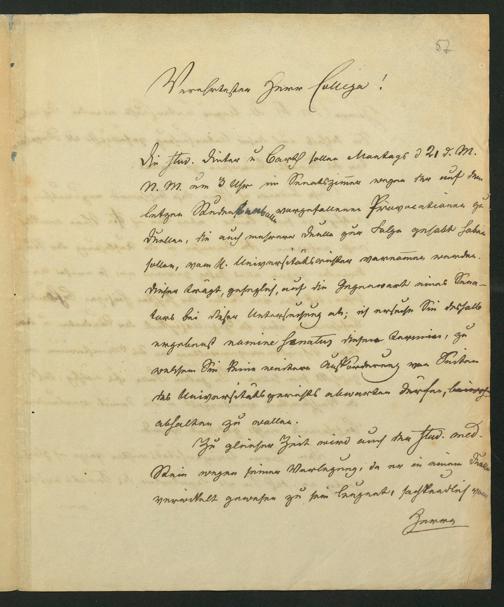 57
Verehrtester Herr College!
Die Stud. Dieter u Barth sollen Montags d 21 d. M.
N. M. um 3 Uhr im Senatszimmer wegen der auf dem
letzten Studentenball vorgefallenen Provocationen zu
Duellen, die auch mehrere Duelle zur Folge gehabt haben
sollen, vom K. Universitätsrichter vernommen werden.
Dieser trägt, gesetzlich, auf die Gegenwart eines Sena-
tors bei dieser Untersuchung an; ich ersuche Sie deshalb
ergebenst nomine Senatus diesen Termin, zu
welchem Sie keine weitere Aufforderung von Seiten
des Universitätsgerichts abwarten dürfen,
abhalten zu wollen.
Zu gleicher Zeit wird auch der Stud. med.
Stein wegen seiner Verletzung, da er in einem Duelle
verwickelt gewesen zu sein leugnet, sachkundlich vom
Herrn